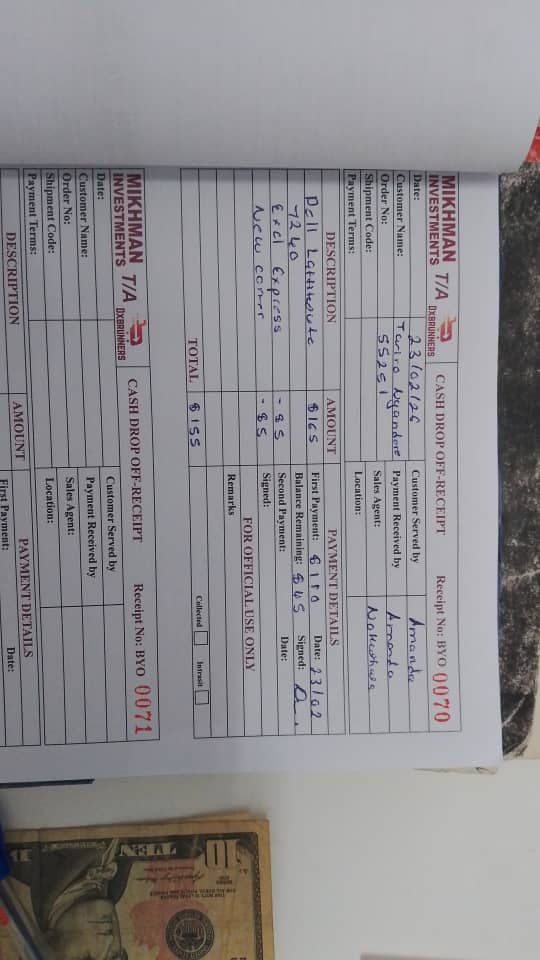 MIKHMAN T/A DXBRUNNERS
INVESTMENTS
CASH DROP OFF-RECEIPT
Receipt No: BYO 0070
Date: 23/02/26 Customer Served by Amanda
Customer Name: Payment Received by Amanda
Order No: 55251 Sales Agent:
Shipment Code: Location:
Payment Terms:
DESCRIPTION AMOUNT PAYMENT DETAILS
Dell $165 First Payment: $110 Date: 23/02
7240 Balance Remaining: $45 Signed:
Excl Express - $5 Second Payment: Date:
New comer - $5 Signed:
FOR OFFICIAL USE ONLY
Remarks
TOTAL $155 Collected Intrasit
MIKHMAN T/A DXBRUNNERS
INVESTMENTS
CASH DROP OFF-RECEIPT
Receipt No: BYO 0071
Date: Customer Served by
Customer Name: Payment Received by
Order No: Sales Agent:
Shipment Code: Location:
Payment Terms:
DESCRIPTION AMOUNT PAYMENT DETAILS
First Payment: Date:
10
TEN